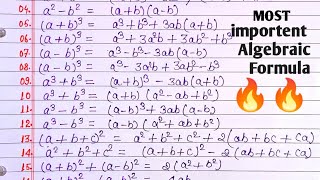 04. a² - b² = (a+b)(a-b)
05. (a+b)³ = a³+b³+3ab(a+b)
06. (a+b)³ = a³+3a²b+3ab²+b³
07. (a-b)³ = a³-b³-3ab(a-b)
08. (a-b)³ = a³-3a²b+3ab²-b³
09. a³+b³ = (a+b)³-3ab(a+b)
10. a³+b³ = (a+b)(a²-ab+b²)
11. a³-b³ = (a-b)³+3ab(a-b)
12. a³-b³ = (a-b)(a²+ab+b²)
13. (a+b+c)² = a²+b²+c²+2(ab+bc+ca)
14. a²+b²+c² = (a+b+c)²-2(ab+bc+ca)
15. (a+b)²+(a-b)² = 2(a²+b²)
MOST
importent
Algebraic
Formula